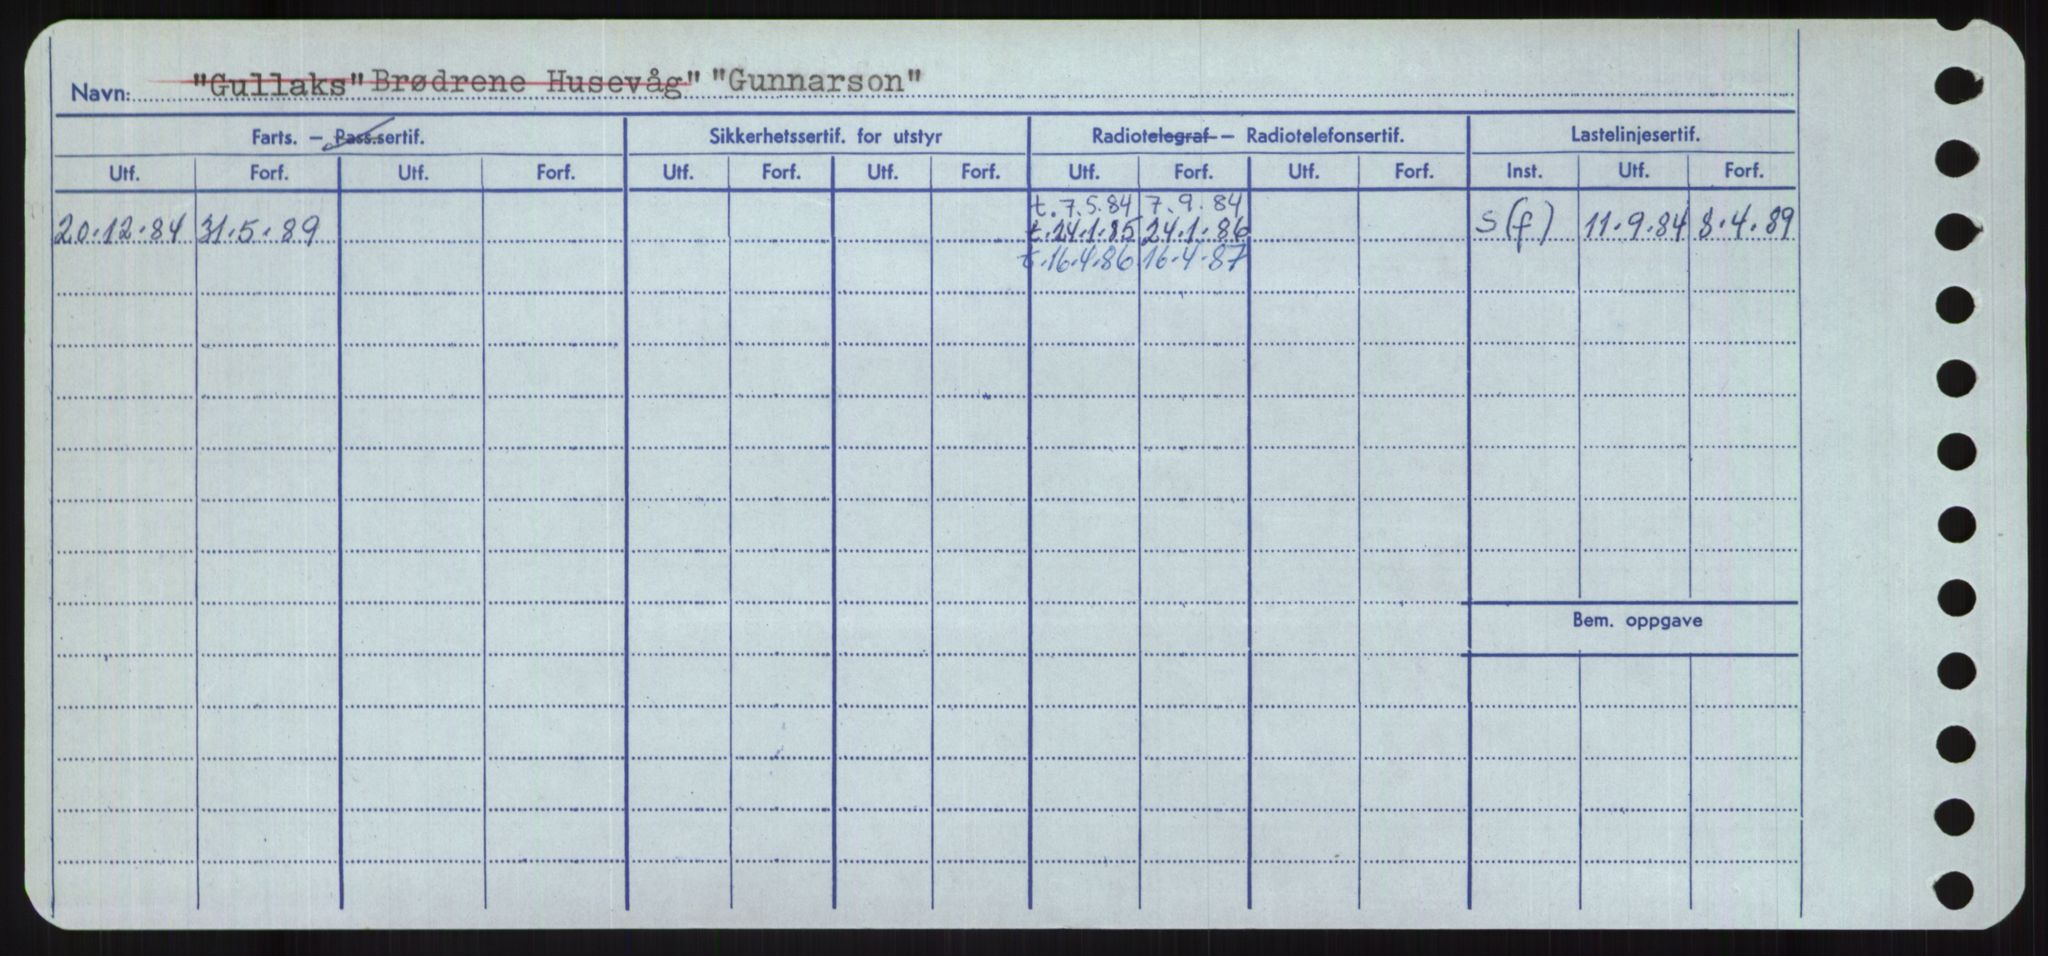 Navn: "Gullaks" Brødrene Husevåg" "Gunnarson"
Farts. — Pass.sertif. Sikkerhetssertif. for utstyr Radiotelegraf — Radiotelefonsertif. Lastelinjesertif.
Utf. Forf. Utf. Forf. Utf. Forf. Utf. Forf. Utf. Forf. Utf. Forf. Inst. Utf. Forf.
t. 7.5.84 7.9.84
20.12.84 31.5.89 t. 24.1.85 24.1.86 S(f) 11.9.84 8.4.89
t. 16.4.86 16.4.87
Bem. oppgave